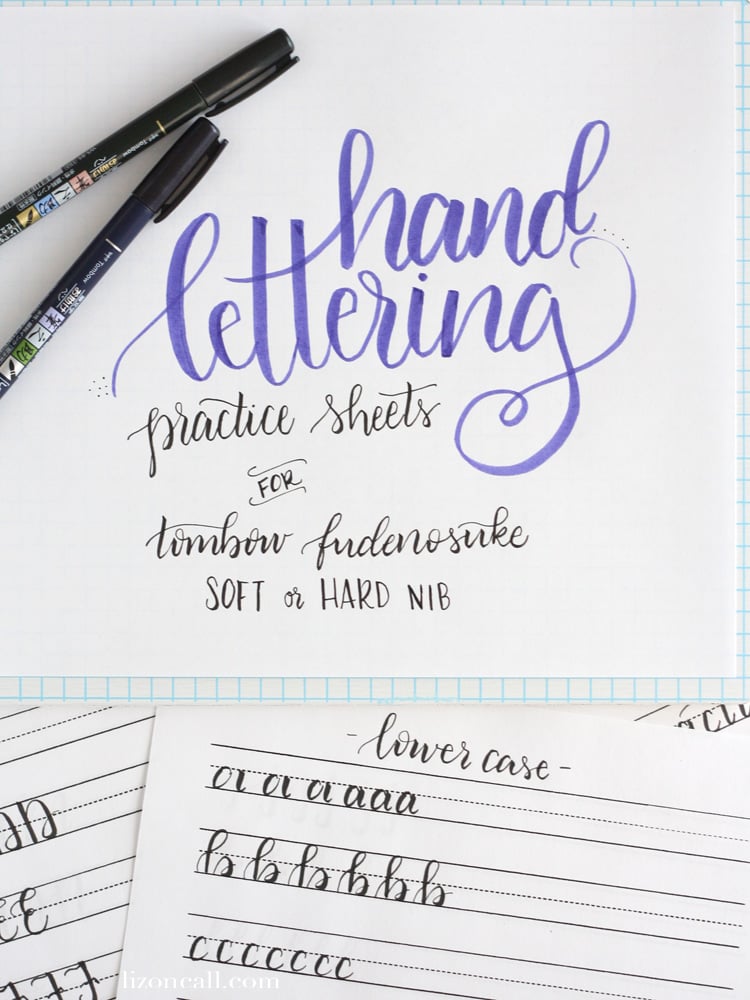 hand
lettering
practice sheets
FOR
tombow fudenosuke
SOFT or HARD NIB
Tombow
Tombow
-lower case-
a a a a a a
b b b b b b
c c c c c c c
lizoncall.com